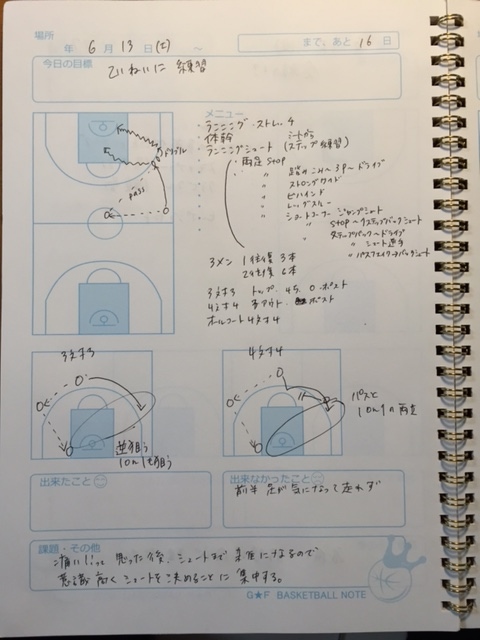 場所
年 6月 13日 (土) ~
まで、あと 16日
今日の目標
ていねいに 練習
メニュー
・ランニング・ストレッチ
・体幹
・ランニングシュート (ステップ練習)
・両足STOP
〃 踏みこみ~3P~ドライブ
〃 ストロングサイド
〃 ビハインド
〃 レッグスルー
〃 シュートコーナー ジャンプシュート
〃 STOP~ステップバックシュート
ステップバック~ドライブ
〃 シュート
〃 パスフェイク
ドリブル
pass
3メン 1往復 3本
2往復 6本
3対3 トップ、45、0、ポスト
4対4 3アウト、ポスト
オールコート4対4
3対3
逆狙う
1on1も狙う
4対4
パスと
1on1の両走
出来たこと
出来なかったこと
前半 足が気になって走れず
課題・その他
痛い!って思った後、シュートまで
意識高くシュートを決めることに集中する。
G★F BASKETBALL NOTE